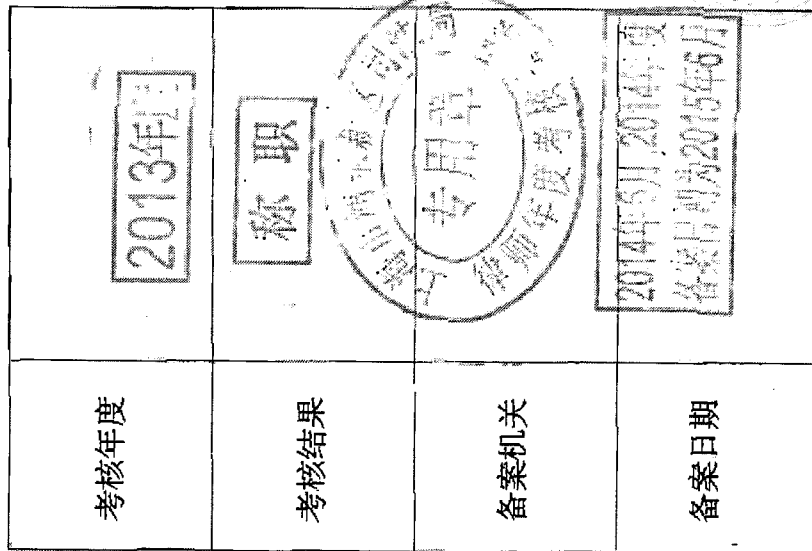 考核年度
2013年度
考核结果
称职
备案机关
专用章
律师年度考核
备案日期
2014年5月 2014年度
备案日期为2015年6月